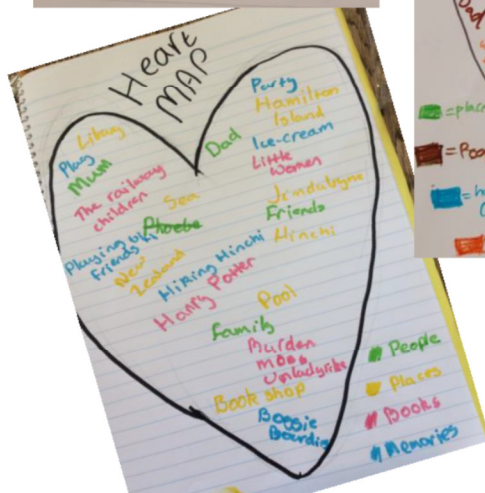 Heart
MAP
Library
Play
Mum
The railway
children
Sea
Phoebe
Playing w/
Friends
New
Zealand
Hiking Hinchi
Harry Potter
Dad
Party
Hamilton
Island
Ice-cream
Little
Women
Jindalyne
Friends
Hinchi
Pool
Family
Burden
Moss
Unladylike
Book shop
Boogie
Boarding
People
Places
Books
Memories
Dad
= place
= Poo